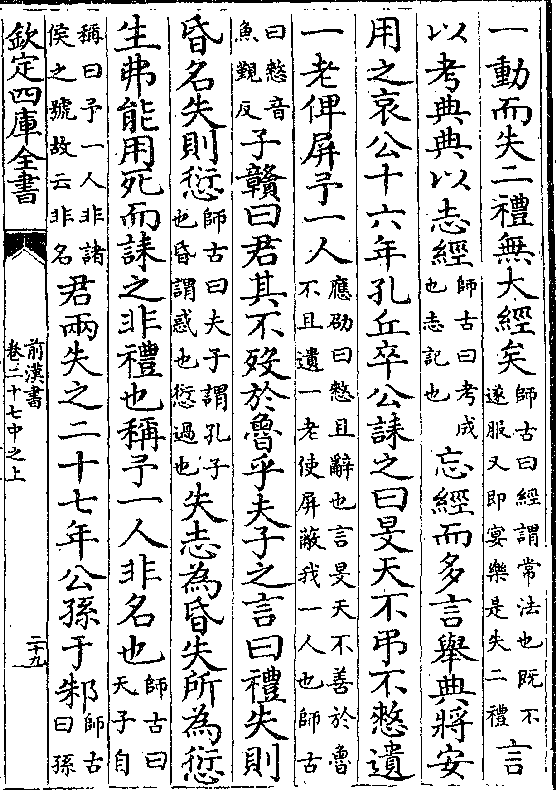 一動而失二禮無大經矣師古曰經謂常法也既不遂服又即宴樂是失二禮言
以考典典以志經師古曰考成也志記也忘經而多言舉典將安
用之哀公十六年孔丘卒公誄之曰旻天不弔不憖遺
一老俾屏予一人應劭曰憖且辭也言旻天不善於魯不且遺一老使屏蔽我一人也師古
曰憖音魚覲反子贛曰君其不歿於魯乎夫子之言曰禮失則
昏名失則愆師古曰夫子謂孔子也昏謂惑也愆過也失志為昏失所為愆
生弗能用死而誄之非禮也稱予一人非名也師古曰天子自
稱曰予一人非諸侯之號故云非名君兩失之二十七年公孫于邾師古曰孫
欽定四庫全書
前漢書
卷二十七中之上
二十九